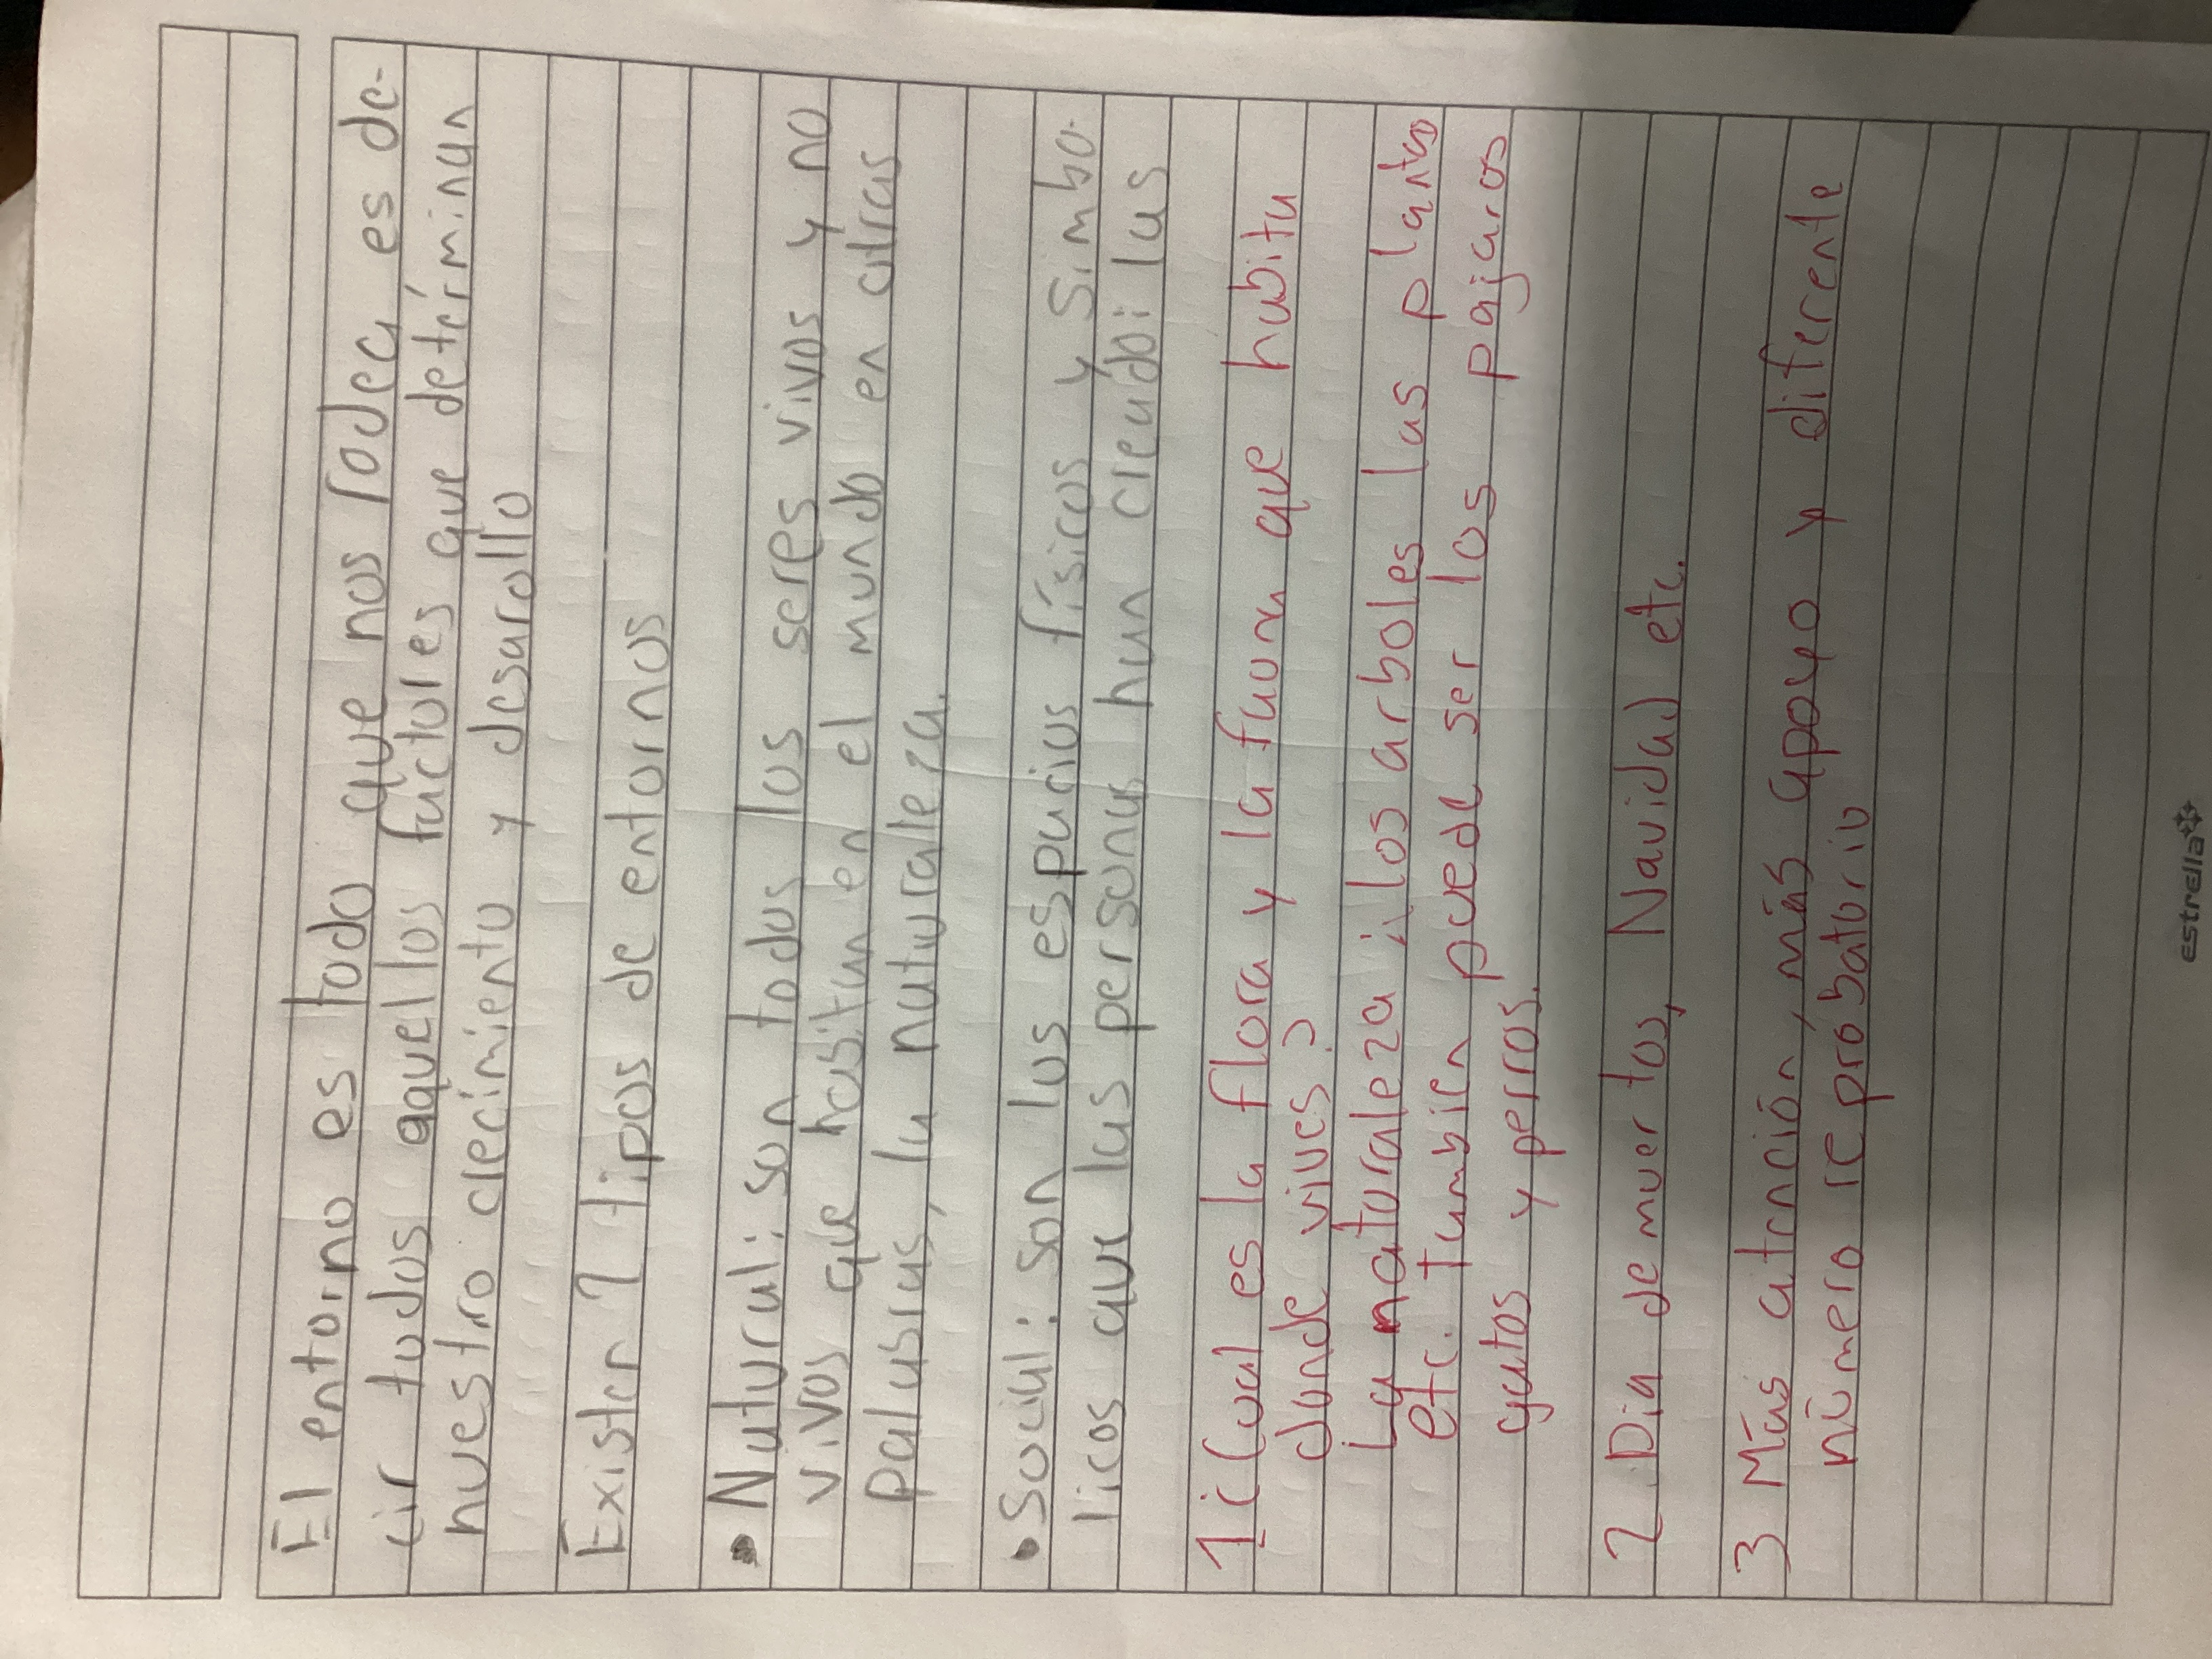 El entorno es todo que nos rodea, es de-
cir todos aquellos factores que detérminan
nuestro crecimiento y desarollo
Existen 2 tipos de entornos
• Natural: son todos los seres vivos y no
vivos que habitan en el mundo en otras
palabras, la naturaleza.
• Social: son los espacios físicos y simbo-
licos que las personas han creado: las
1 ¿Cual es la flora y la fauna que habita
donde vives?
La naturaleza, los arboles las plantas
etc. Tambien puede ser los pajaros
gatos y perros.
2 Dia de muertos, Navidad etc.
3 Más atención, más apoyo y diferente
número reprobatorio
estrella